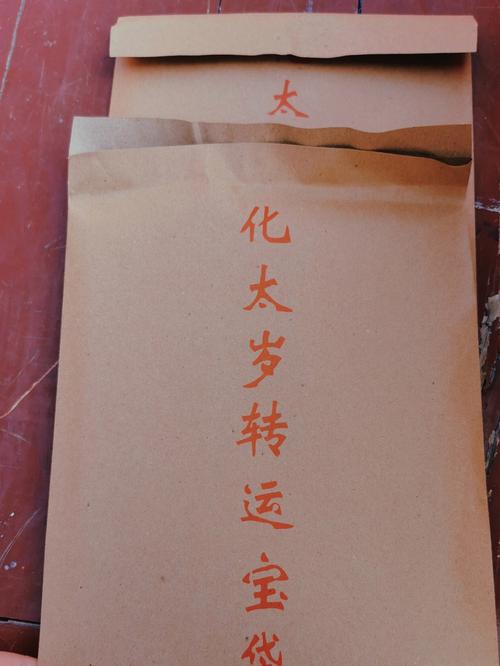 太
化太岁转运宝袋